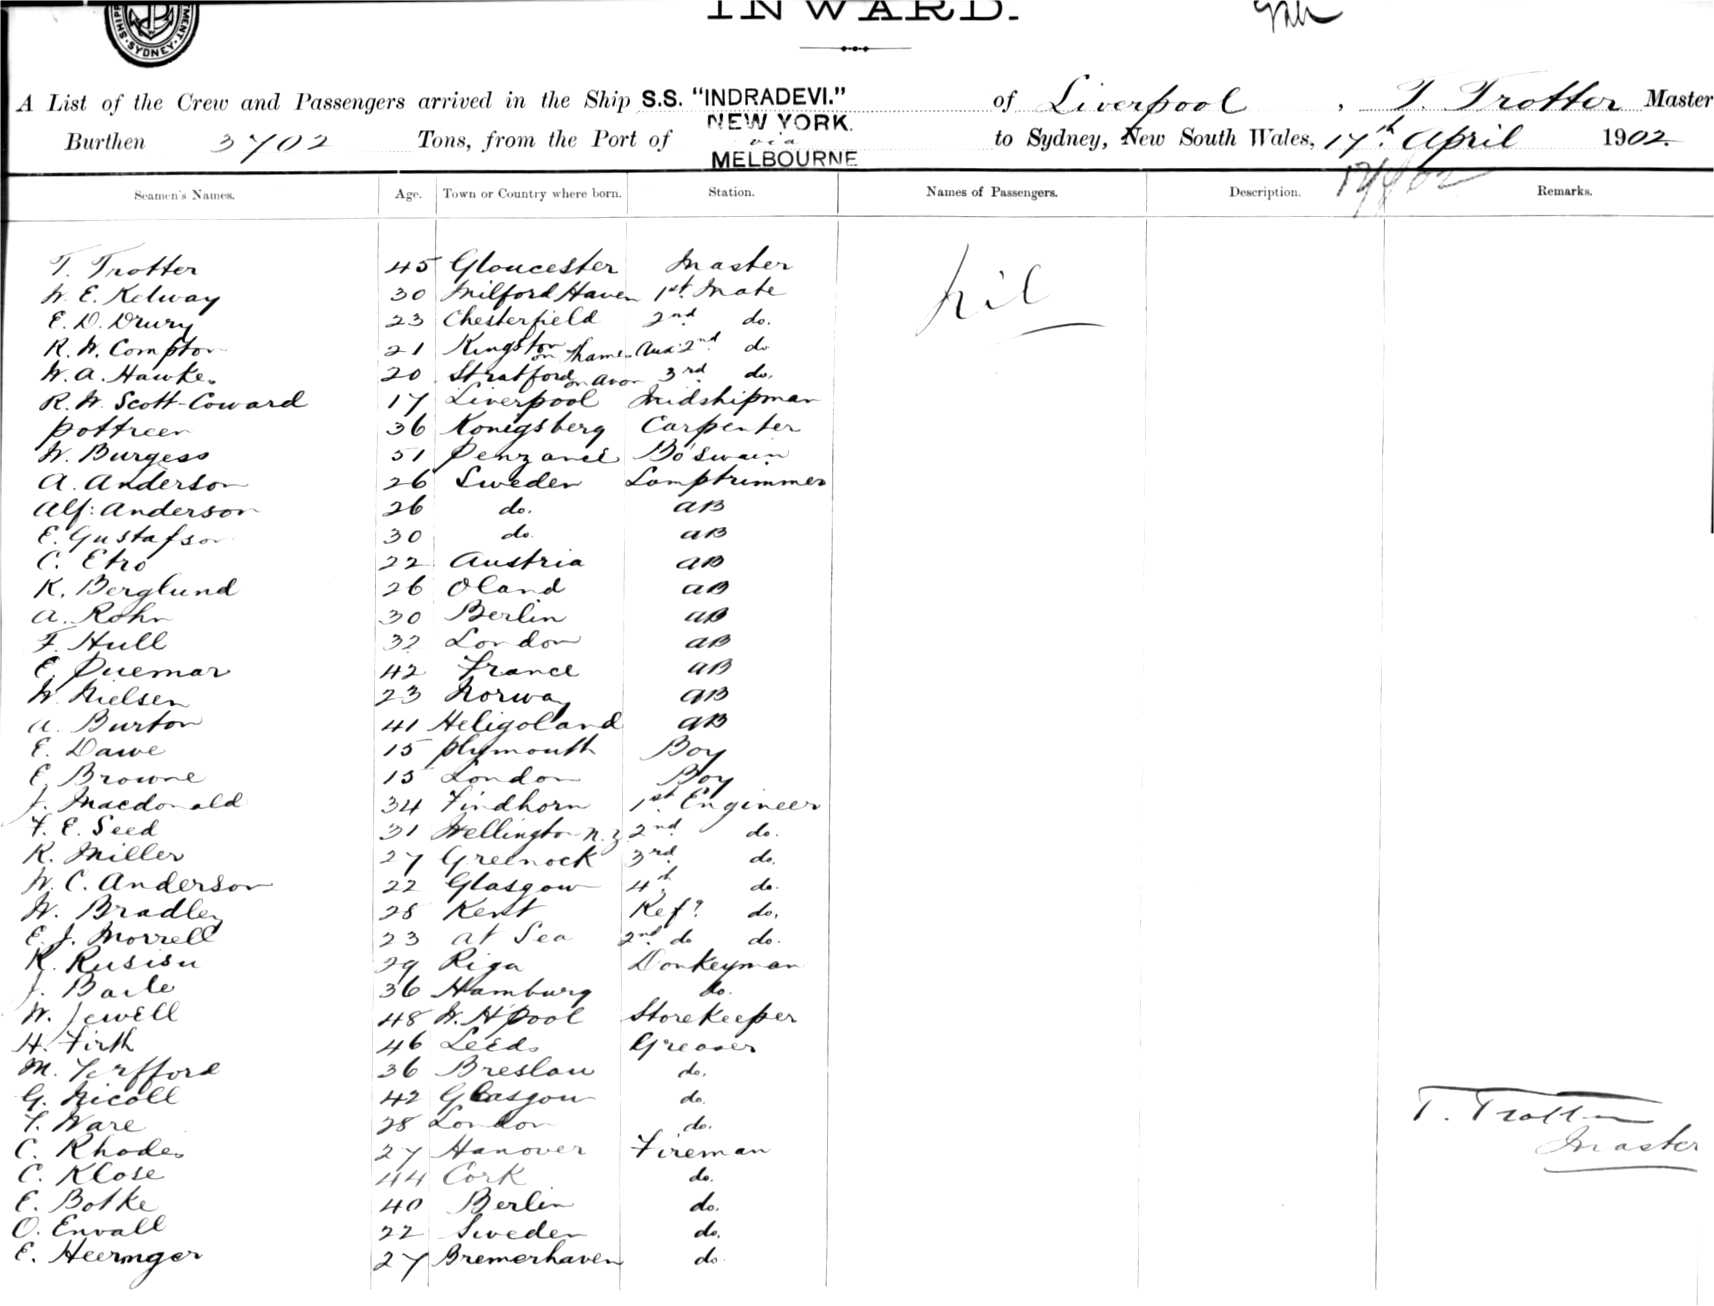 SHIPPING
MENT. SYDNEY.
INWARD.
A List of the Crew and Passengers arrived in the Ship S.S. "INDRADEVI." of Liverpool, T. Trotter Master
Burthen 3702 Tons, from the Port of NEW YORK. via MELBOURNE to Sydney, New South Wales, 17th April 1902.
Seamen's Names. Age. Town or Country where born. Station. Names of Passengers. Description. Remarks.
T. Trotter 45 Gloucester Master Nil
W. E. Kelway 30 Milford Haven 1st Mate
E. D. Drury 23 Chesterfield 2nd do.
R. W. Compton 21 Kingston on Thames Aux 2nd do
W. A. Hawkes 20 Stratford on Avon 3rd do.
R. W. Scott-Coward 17 Liverpool Midshipman
Pottreer 36 Konigsberg Carpenter
W. Burgess 51 Penzance Bo'swain
A. Anderson 26 Sweden Lamptrimmer
Alf: Anderson 26 do. AB
E. Gustafson 30 do. AB
C. Etro 22 Austria AB
K. Berglund 26 Oland AB
A. Rohn 30 Berlin AB
F. Hull 32 London AB
E. Duemar 42 France AB
W. Nielsen 23 Norway AB
A. Burton 41 Heligoland AB
E. Dawe 15 Plymouth Boy
E. Browne 15 London Boy
J. Macdonald 34 Findhorn 1st Engineer
F. E. Seed 31 Wellington N.Z. 2nd do.
R. Miller 27 Greenock 3rd do.
W. C. Anderson 22 Glasgow 4th do.
W. Bradley 28 Kent Ref? do.
E. J. Morrell 23 at Sea 2nd do do.
K. Rusisu 29 Riga Donkeyman
J. Barle 36 Hamburg do.
W. Jewell 48 W. H'pool Storekeeper
H. Firth 46 Leeds Greaser
M. 36 Breslau do.
G. Nicoll 42 Glasgow do. T. Trotter
T. Ware 28 London do. Master
C. Rhodes 27 Hanover Fireman
C. Klose 44 Cork do.
E. Botke 40 Berlin do.
O. Envall 22 Sweden do.
E. Heeringer 27 Bremerhaven do.